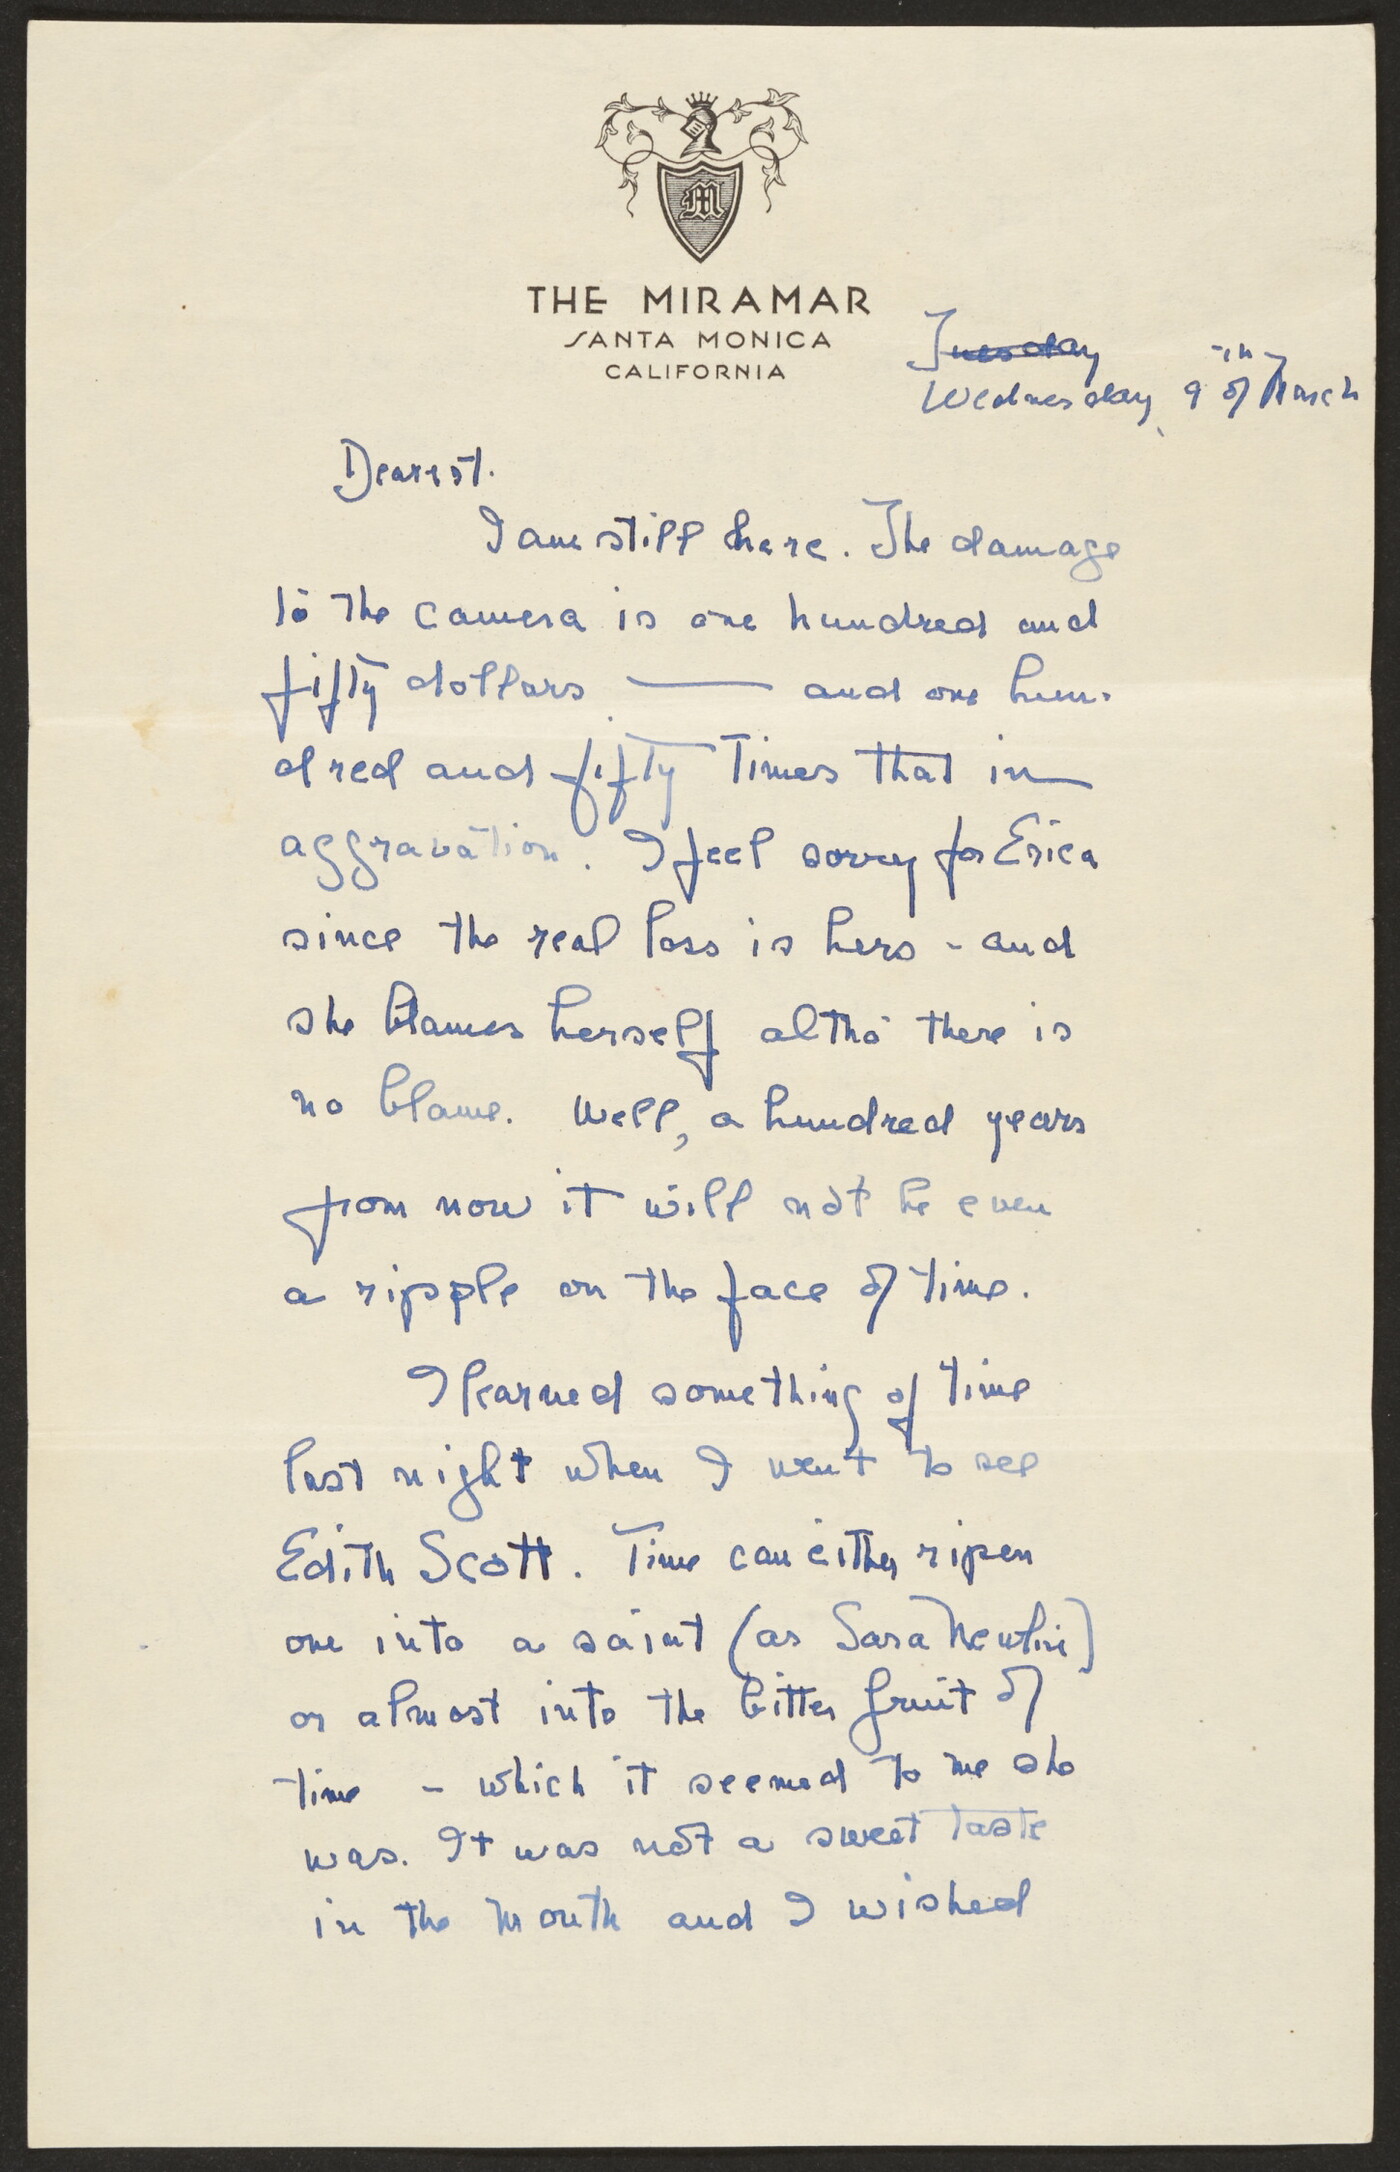 M
THE MIRAMAR
SANTA MONICA
CALIFORNIA
Tuesday
Wednesday, 9 of March
Dearest.
I am still here. The damage
to the camera is one hundred and
fifty dollars — and one hun-
dred and fifty times that in
aggravation. I feel sorry for Erica
since the real loss is hers - and
she blames herself altho there is
no blame. Well, a hundred years
from now it will not be even
a ripple on the face of time.
I learned something of time
last night when I went to see
Edith Scott. Time can either ripen
one into a saint (as Sara
or almost into the bitter fruit of
time - which it seemed to me she
was. It was not a sweet taste
in the mouth and I wished